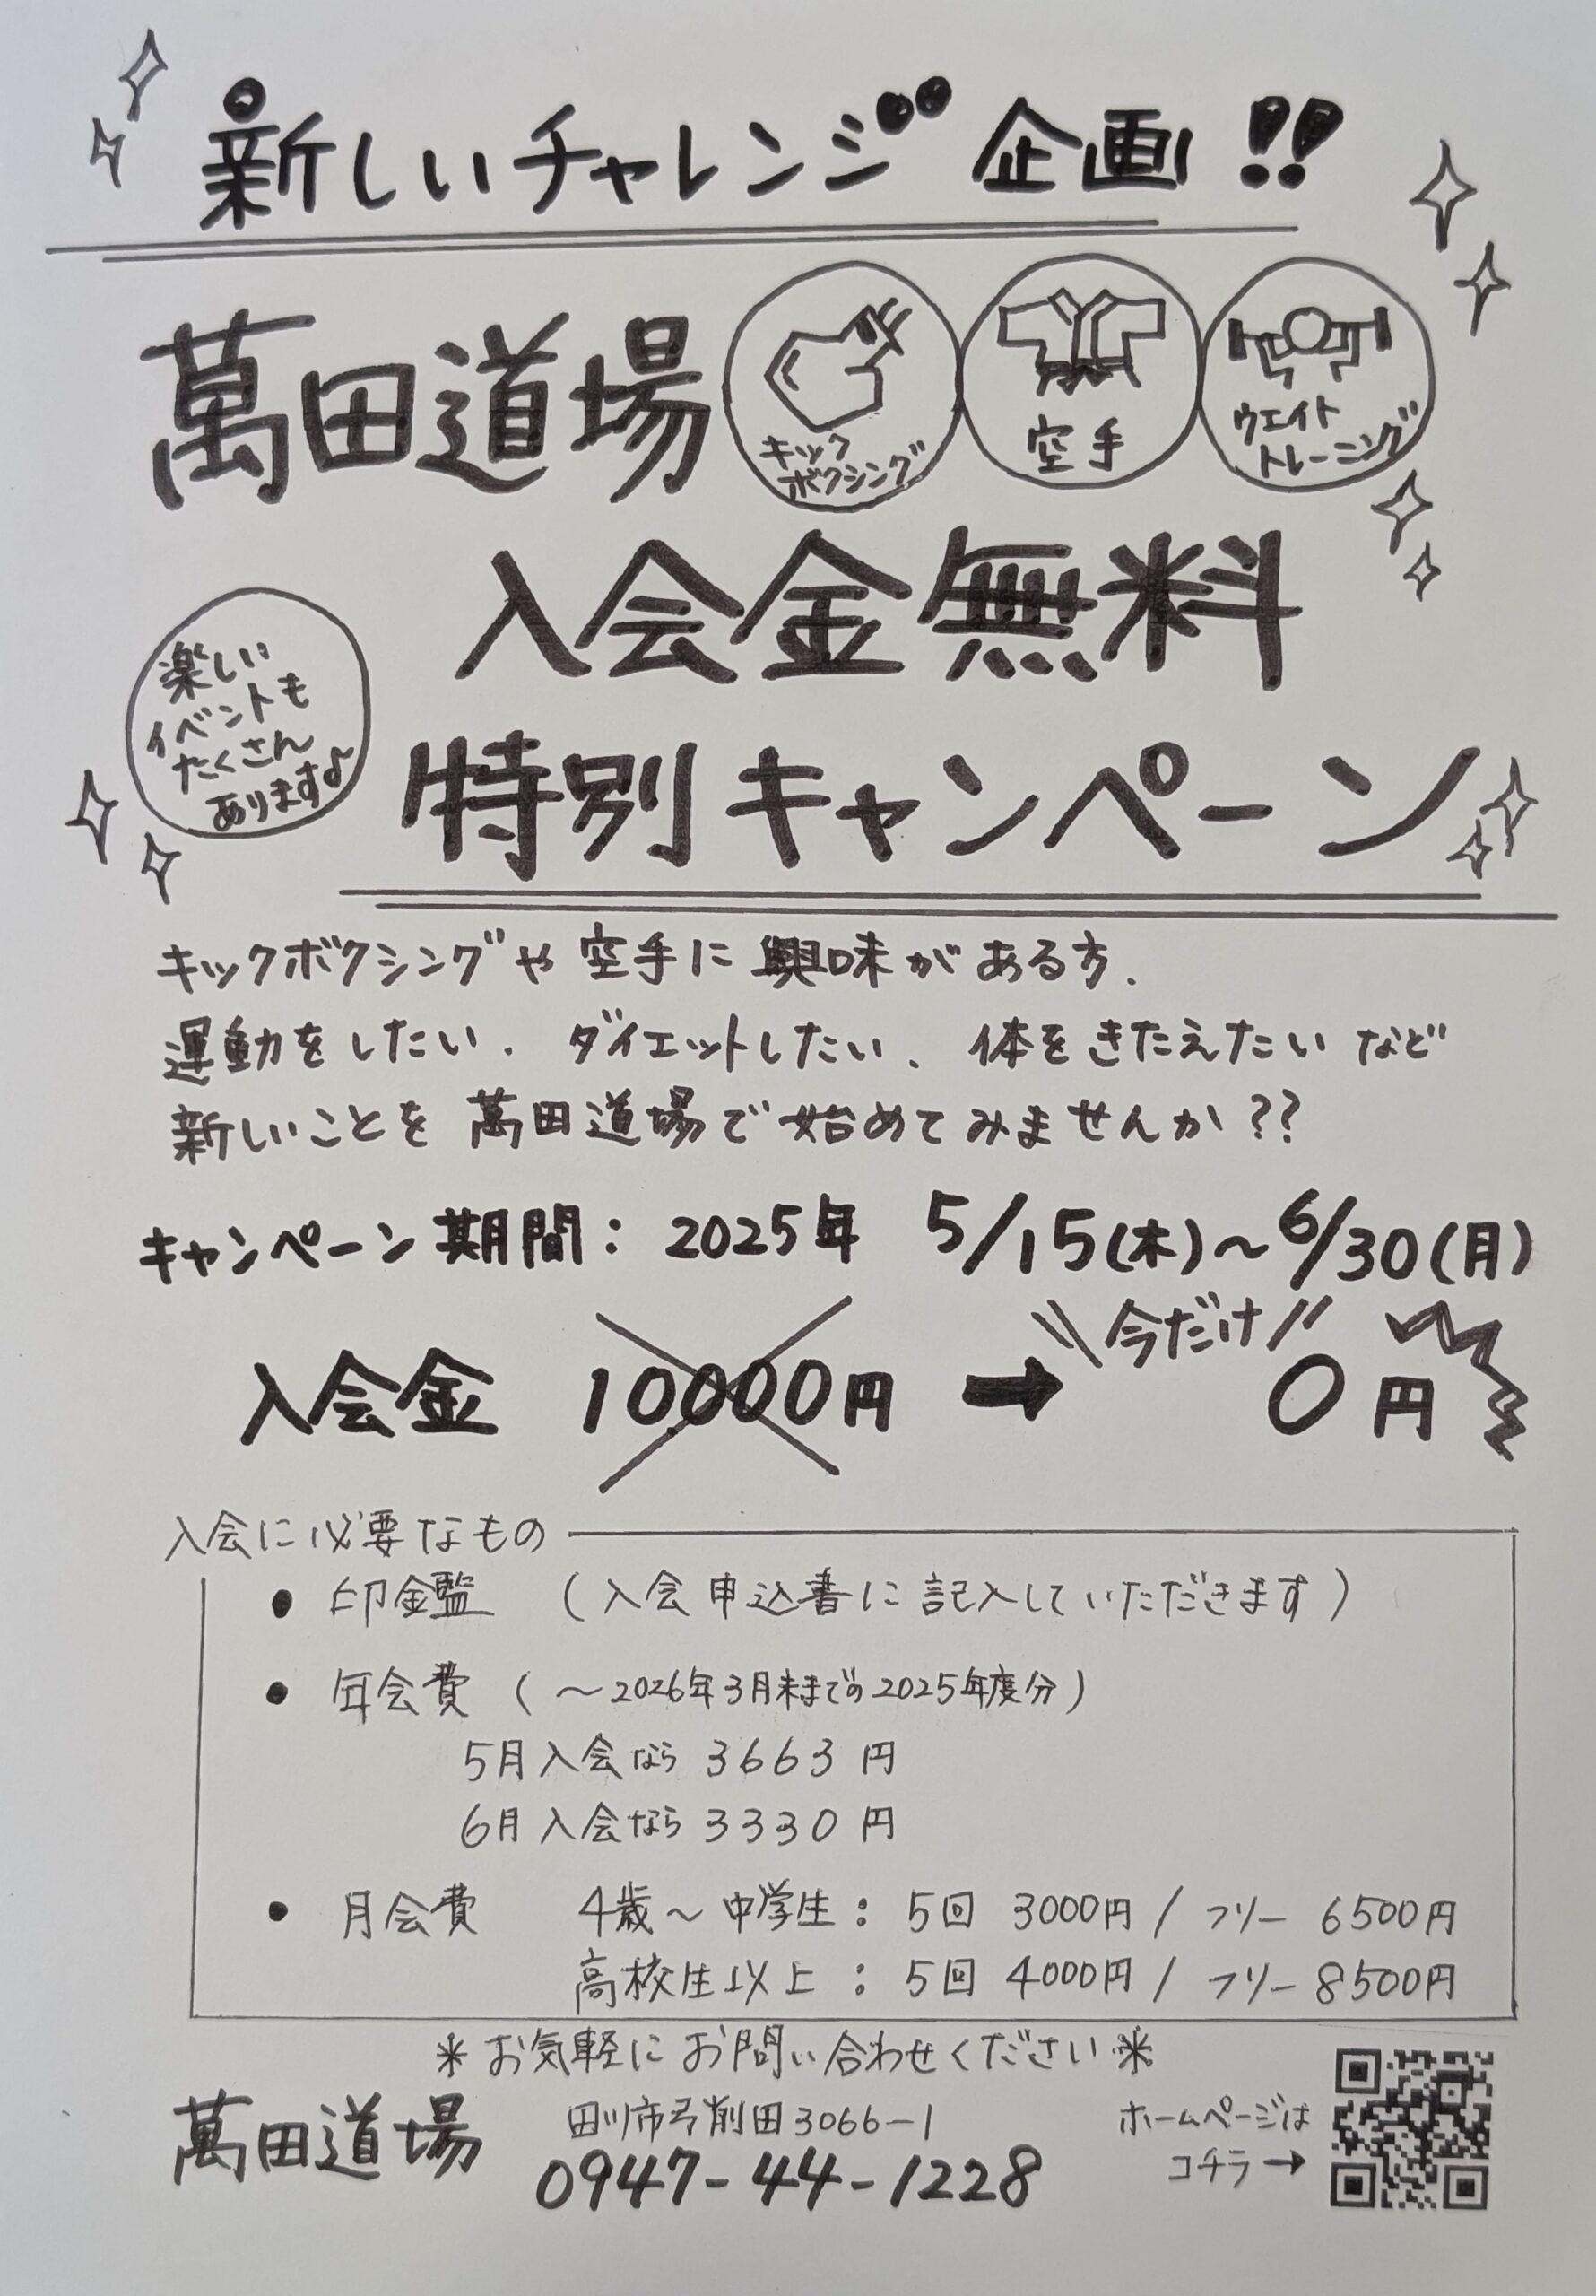 新しいチャレンジ企画!!
萬田道場
キック
ボクシング
空手
ウエイト
トレーニング
入会金無料
楽しい
イベントも
たくさん
あります♪
特別キャンペーン
キックボクシングや空手に興味がある方、
運動をしたい、ダイエットしたい、体をきたえたいなど
新しいことを萬田道場で始めてみませんか??
キャンペーン期間:2025年 5/15(木)~6/30(月)
\\今だけ//
入会金 10000円 ➡ 0円
入会に必要なもの
● 印鑑 (入会申込書に記入していただきます)
● 年会費 (~2026年3月末までの2025年度分)
5月入会なら 3663円
6月入会なら 3330円
● 月会費 4歳~中学生:5回 3000円/フリー 6500円
高校生以上:5回 4000円/フリー 8500円
*お気軽にお問い合わせください*
萬田道場
田川市弓削田3066-1
0947-44-1228
ホームページは
コチラ→